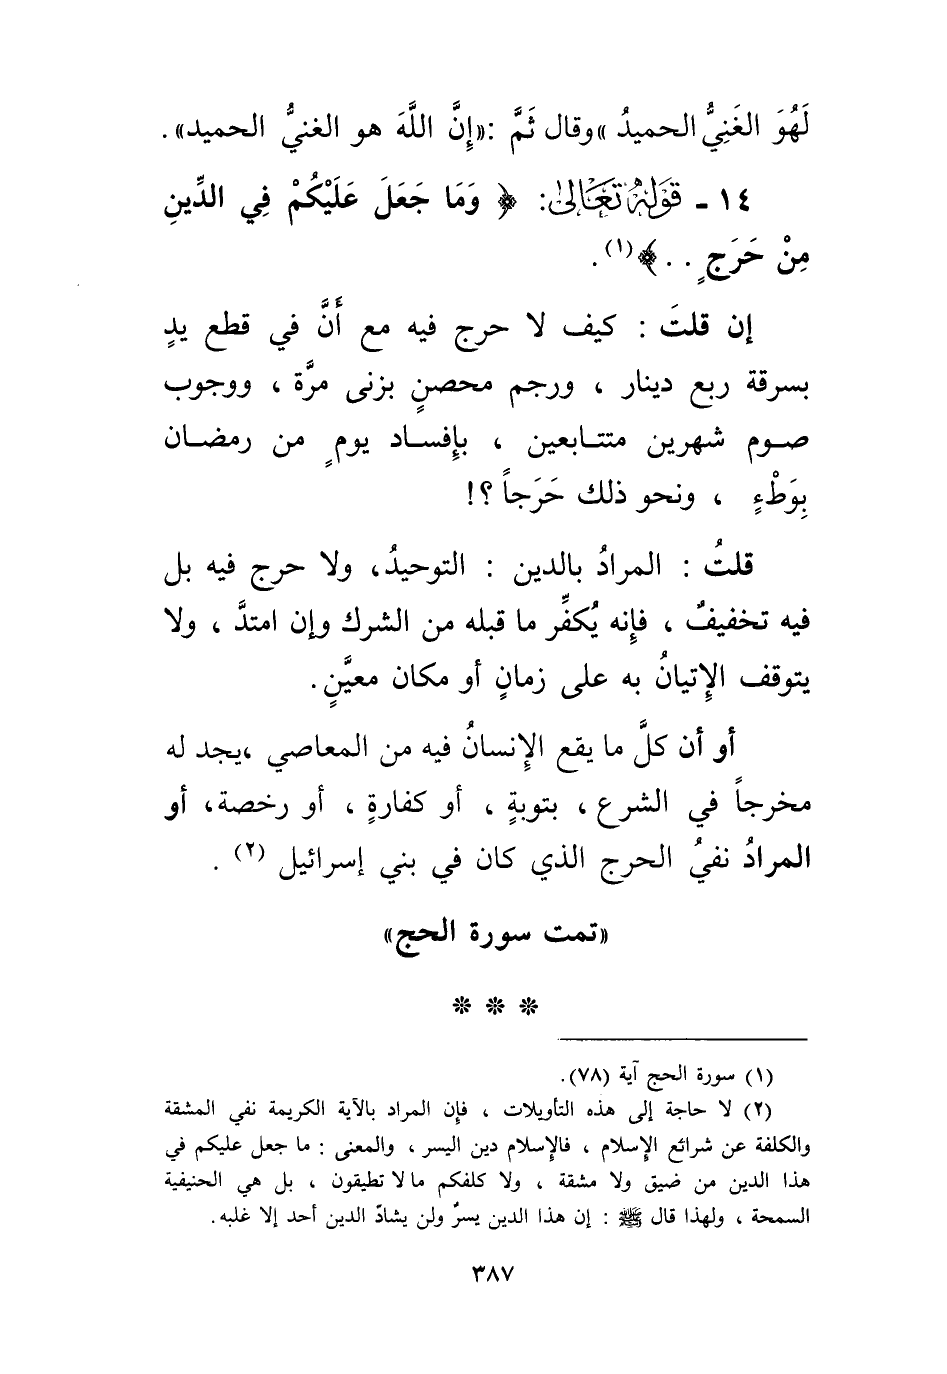 لَهُوَ الغَنِيُّ الحميدُ »وقال ثَمَّ :«إِنَّ اللَّهَ هو الغنيُّ الحميد».
١٤ - قَوْلُهُ تَعَالىٰ: ﴿ وَمَا جَعَلَ عَلَيْكُمْ فِي الدِّينِ
مِنْ حَرَجٍ . . ﴾(١).
إن قلتَ : كيف لا حرج فيه مع أَنَّ في قطع يدٍ
بسرقة ربع دينار ، ورجم محصنٍ بزنى مرَّة ، ووجوب
صوم شهرين متتابعين ، بإفساد يومٍ من رمضان
بِوَطْءٍ ، ونحو ذلك حَرَجاً ؟!
قلتُ : المرادُ بالدين : التوحيدُ، ولا حرج فيه بل
فيه تخفيفٌ ، فإنه يُكفِّر ما قبله من الشرك وإن امتدَّ ، ولا
يتوقف الإتيانُ به على زمانٍ أو مكان معيَّنٍ.
أو أن كلَّ ما يقع الإنسانُ فيه من المعاصي ،يجد له
مخرجاً في الشرع ، بتوبةٍ ، أو كفارةٍ ، أو رخصة، أو
المرادُ نفيُ الحرج الذي كان في بني إسرائيل (٢) .
«تمت سورة الحج»
* * *
(١) سورة الحج آية (٧٨).
(٢) لا حاجة إلى هذه التأويلات ، فإن المراد بالآية الكريمة نفي المشقة
والكلفة عن شرائع الإسلام ، فالإسلام دين اليسر ، والمعنى : ما جعل عليكم في
هذا الدين من ضيق ولا مشقة ، ولا كلفكم ما لا تطيقون ، بل هي الحنيفية
السمحة ، ولهذا قال ﷺ : إن هذا الدين يسرٌ ولن يشادّ الدين أحد إلا غلبه.
٣٨٧